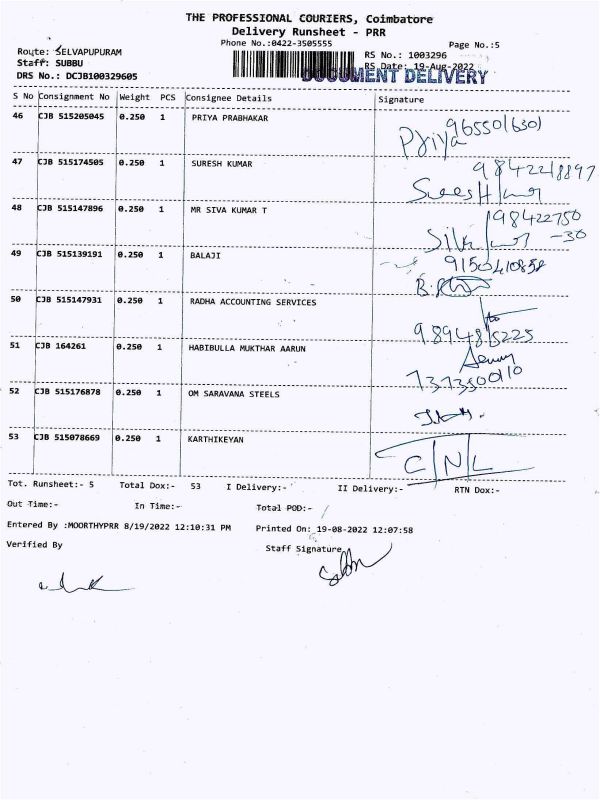 THE PROFESSIONAL COURIERS, Coimbatore
Delivery Runsheet - PRR
Phone No.:0422-3505555
Page No.:5
Route: SELVAPUPURAM
RS No.: 1003296
Staff: SUBBU
RS Date: 19-Aug-2022
DOCUMENT DELIVERY
DRS No.: DCJB100329605
S No Consignment No Weight PCS Consignee Details Signature
46 CJB 515205045 0.250 1 PRIYA PRABHAKAR
9655016301
Priya
47 CJB 515174505 0.250 1 SURESH KUMAR
9842218897
48 CJB 515147896 0.250 1 MR SIVA KUMAR T
98422750
-30
49 CJB 515139191 0.250 1 BALAJI
9150410858
50 CJB 515147931 0.250 1 RADHA ACCOUNTING SERVICES
9894815225
51 CJB 164261 0.250 1 HABIBULLA MUKTHAR AARUN
7373500110
52 CJB 515176878 0.250 1 OM SARAVANA STEELS
53 CJB 515078669 0.250 1 KARTHIKEYAN
C/N/L
Tot. Runsheet:- 5 Total Dox:- 53 I Delivery:- II Delivery:- RTN Dox:-
Out Time:- In Time:- Total POD:-
Entered By :MOORTHYPRR 8/19/2022 12:10:31 PM Printed On: 19-08-2022 12:07:58
Verified By Staff Signature